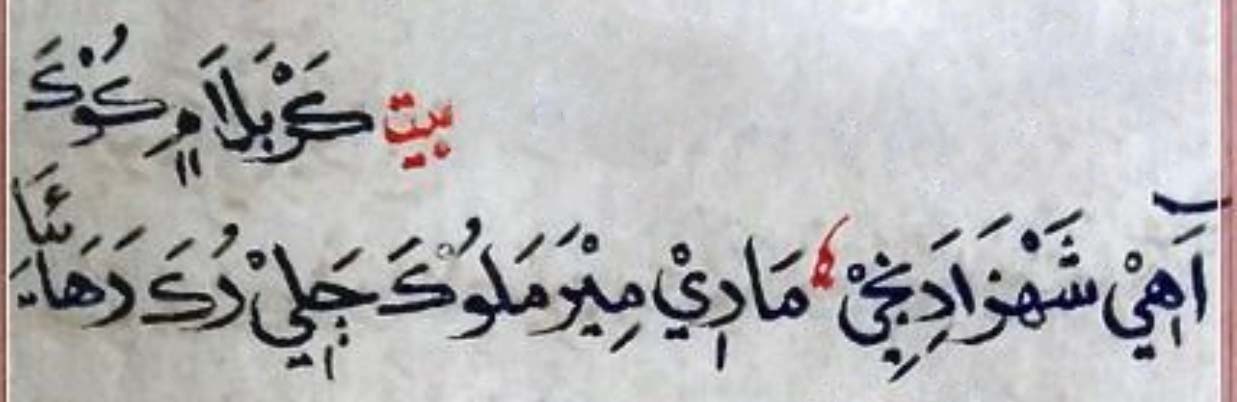 بيت كَرْبَلَا مٍ كُوْكَ
آَهِيْ شَهْزَادَنِجِيْ ، مَادِيْ مِيْرَ مَلُوْكَ جَلِيْ دُكَ